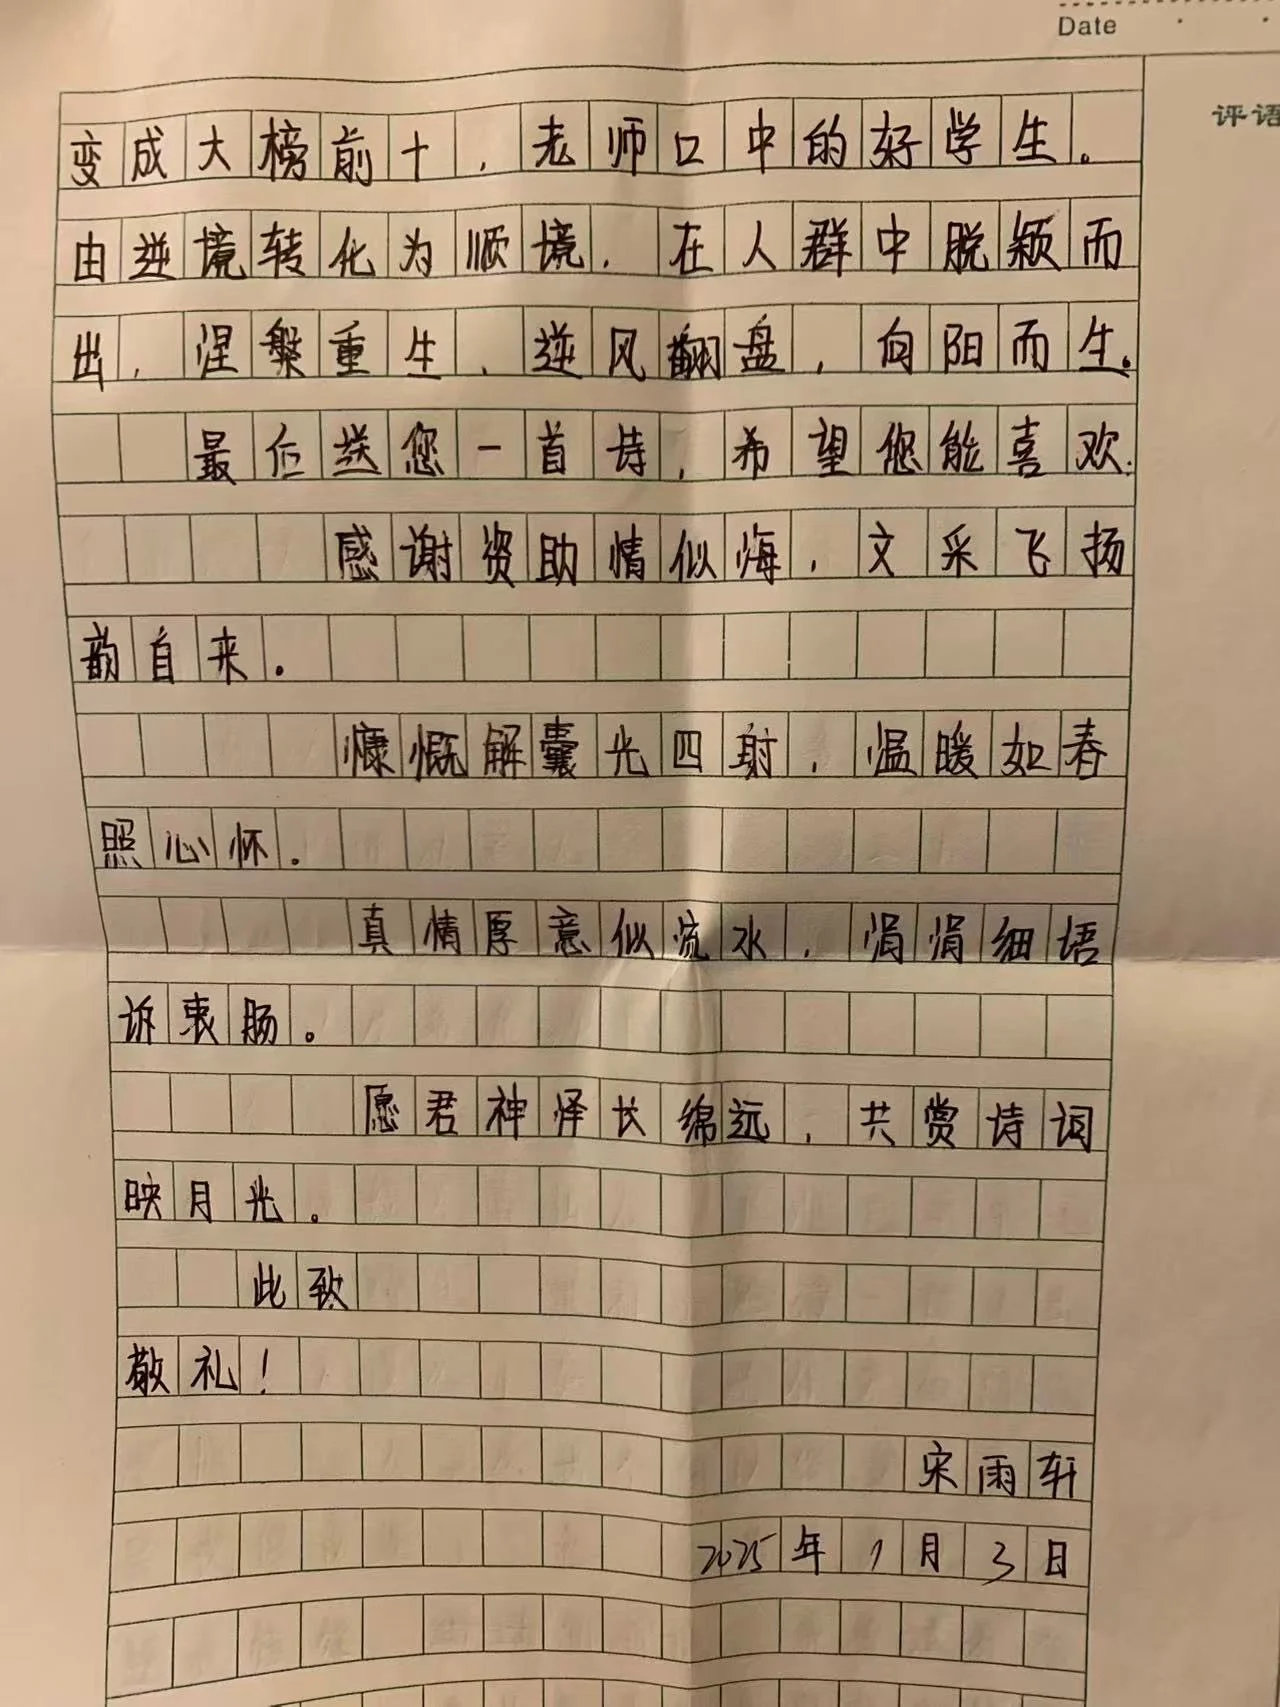 Date
评语
变成大榜前十，老师口中的好学生。
由逆境转化为顺境，在人群中脱颖而
出，涅槃重生，逆风翻盘，向阳而生。
最后送您一首诗，希望您能喜欢：
感谢资助情似海，文采飞扬
韵自来。
慷慨解囊光四射，温暖如春
照心怀。
真情厚意似流水，涓涓细语
诉衷肠。
愿君神怿长绵远，共赏诗词
映月光。
此致
敬礼！
宋雨轩
2025年1月3日